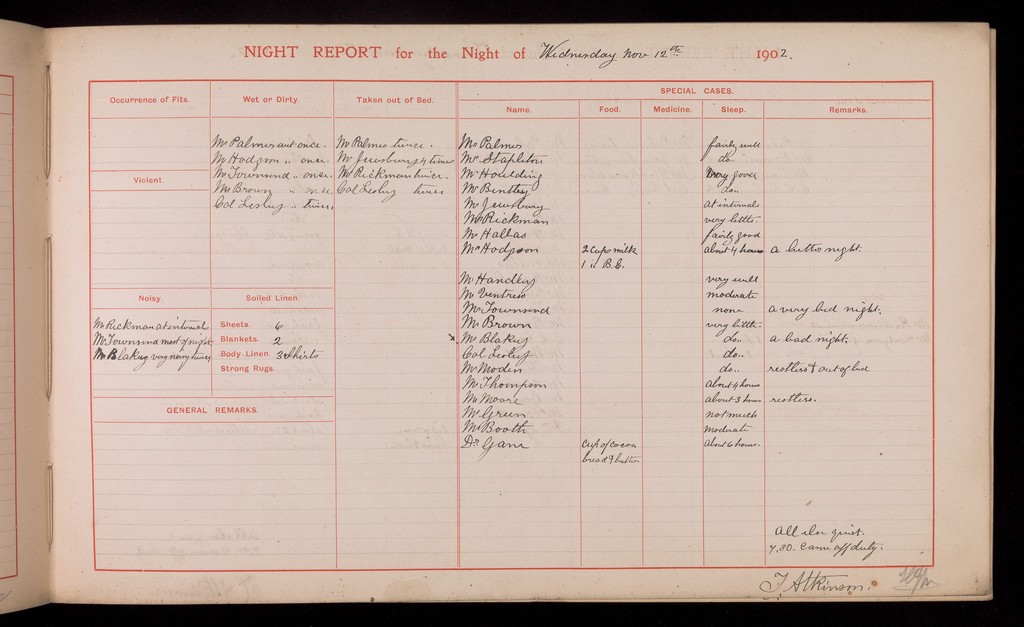 NIGHT REPORT for the Night of Wednesday Nov 12th 1902.
Occurrence of Fits.
Wet or Dirty.
Mr Palmer wet once.
Mr Hodgson " once.
Mr Townsend " once.
Mr Brown " once.
Col Lesley " twice.
Taken out of Bed.
Mr Palmer twice.
Mr Jewsbury 4 times
Mr Rickman twice.
Col Lesley twice
Violent.
Noisy.
Mr Rickman at intervals
Mr Townsend most of night.
Mr Blakey very noisy twice
Soiled Linen.
Sheets. 6
Blankets. 2
Body Linen. 3 Shirts
Strong Rugs.
GENERAL REMARKS.
SPECIAL CASES.
Name. Food. Medicine. Sleep. Remarks.
Mr Palmer fairly well
Mr Stapleton do..
Mr Houlding very good
Mr Bentley do..
Mr Jewsbury at intervals
Mr Rickman very little.
Mr Hallas fairly good
Mr Hodgson 2 cups milk about 4 hours a better night.
1 " B.C.
Mr Handley very well
Mr Ventress moderate
Mr Townsend none a very bad night.
Mr Brown very little.
x Mr Blakey do.. a bad night.
Col Lesley do..
Mr Moden do.. restless & out of bed
Mr Thompson about 4 hours
Mr Moore about 3 hours restless.
Mr Green not much
Mr Booth moderate
Dr Gane cup of cocoa about 6 hours.
bread & butter
All else quiet.
7.30. Came off duty.
T Atkinson.